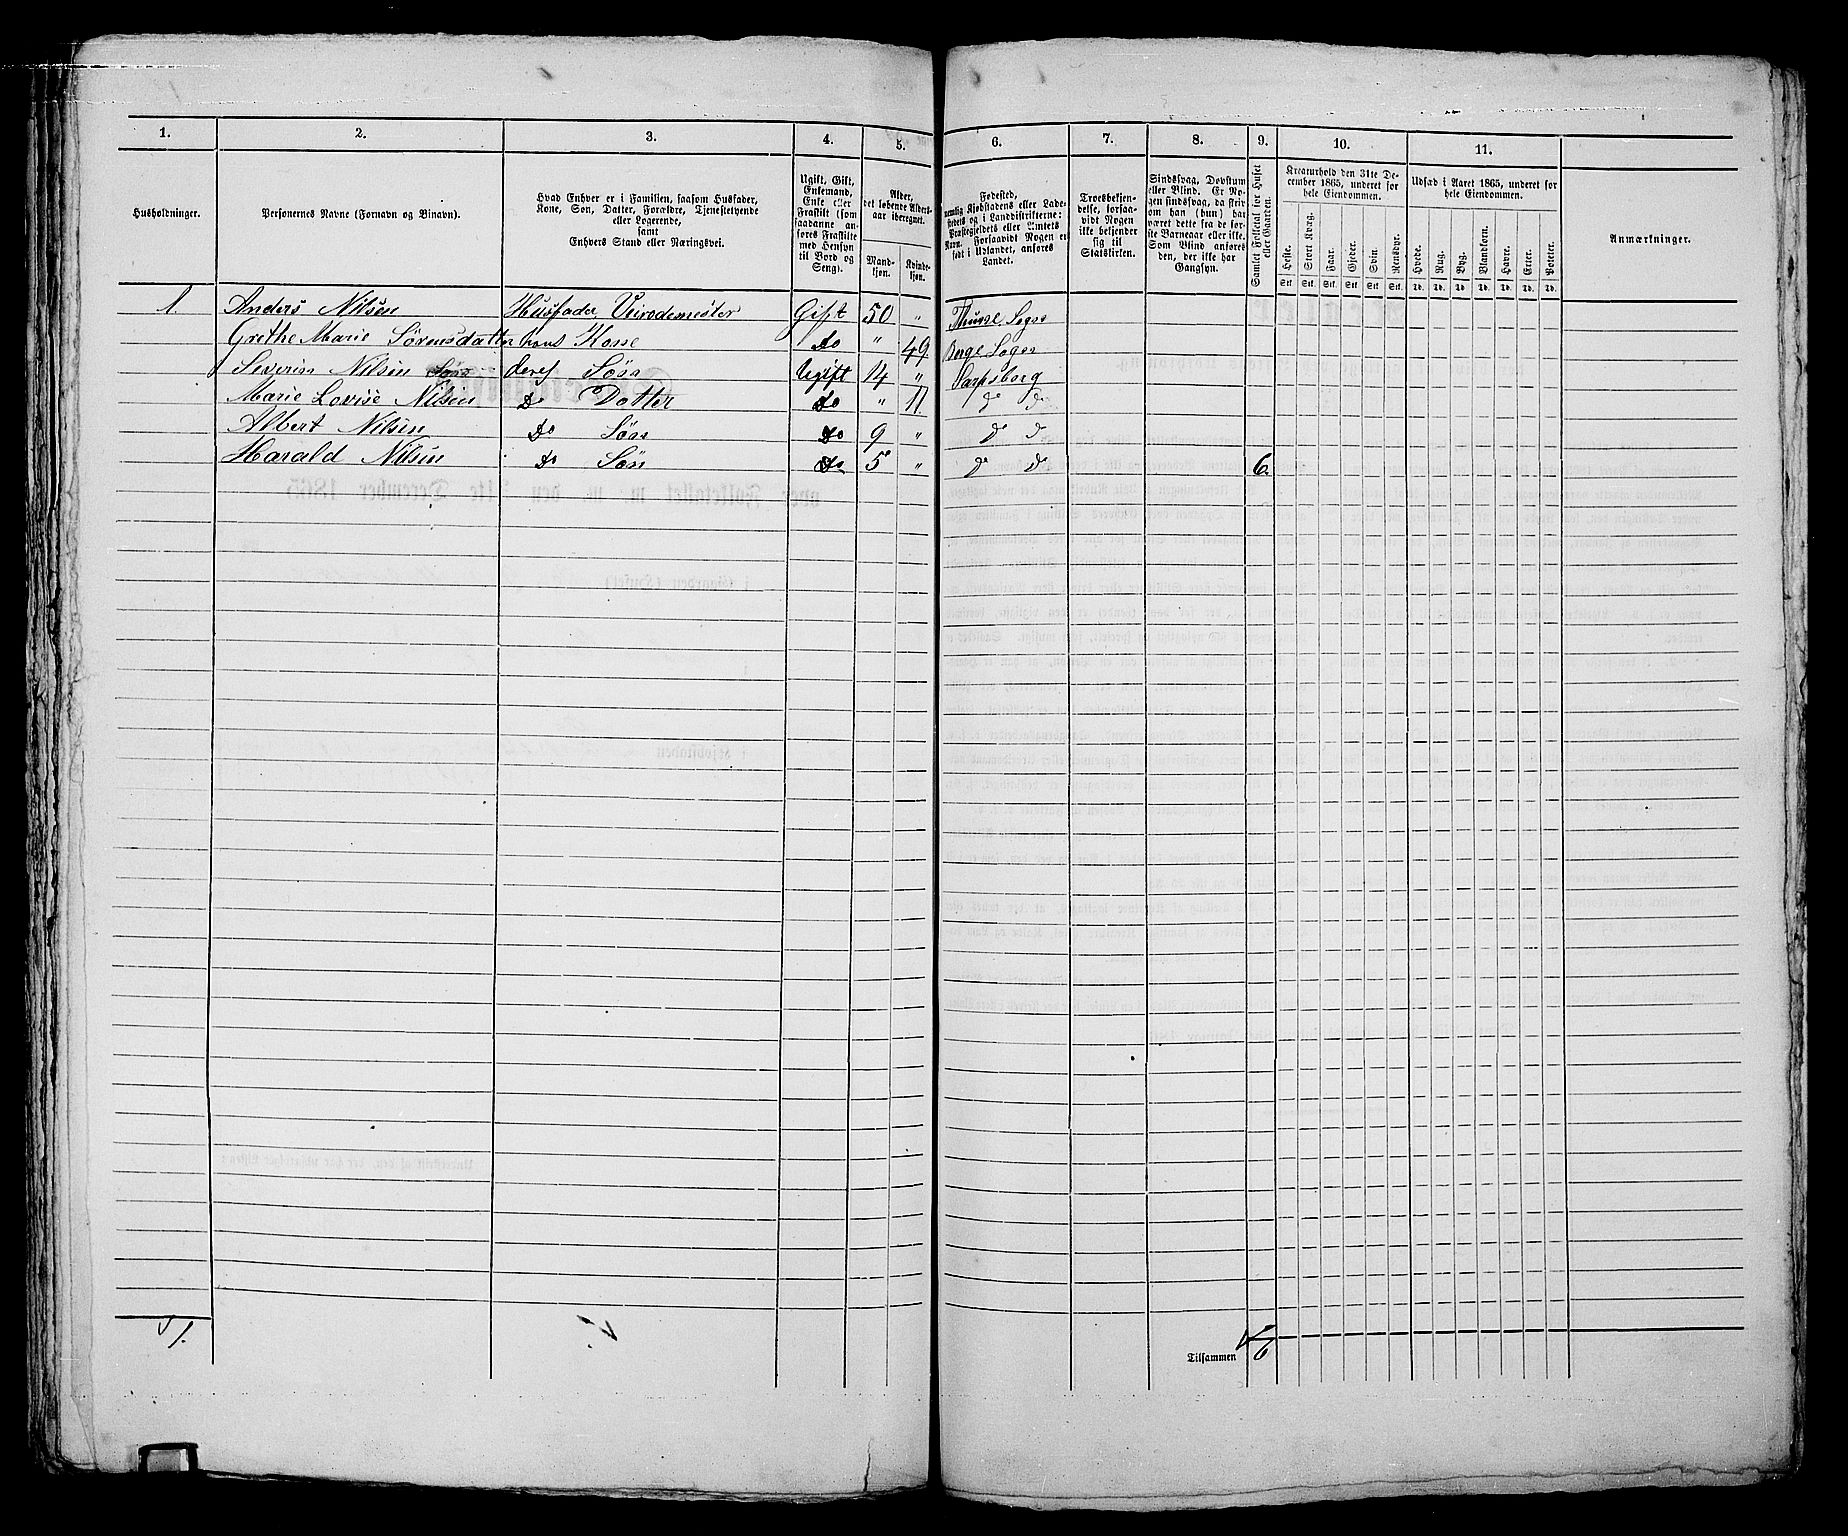 1. 2. 3. 4. 5. 6. 7. 8. 9. 10. 11.
Husholdninger.
Personernes Navne (Fornavn og Binavn).
Hvad Enhver er i Familien, saasom Husfader,
Kone, Søn, Datter, Forældre, Tjenestetyende
eller Logerende,
samt
Enhvers Stand eller Næringsvei.
Ugift, Gift,
Enkemand,
Enke eller
Fraskilt (som
saadanne an-
føres Fraskilte
med Hensyn
til Bord og
Seng).
Alder,
det løbende Alders-
aar iberegnet.
Mand-
kjøn.
Kvinde-
kjøn.
Fødested,
nemlig Kjøbstadens eller Lade-
stedets og i Landdistrikterne:
Præstegjeldets eller Amtets
Navn. Forsaavidt Nogen er
født i Udlandet, anføres
Landet.
Troesbekjen-
delse, forsaa-
vidt Nogen
ikke bekjender
sig til
Statskirken.
Sindssvag, Døvstum
eller Blind. Er No-
gen sindssvag, da skriv
om han (hun) har
været dette fra de før-
ste Barneaar eller ikke.
Som Blind anføres
den, der ikke har
Gangsyn.
Samlet Folketal for Huset
eller Gaarden.
Kreaturhold den 31te De-
cember 1865, underet for
hele Eiendommen.
Heste. Stort Kvæg. Faar. Gjeder. Svin. Rensdyr.
Stk. Stk. Stk. Stk. Stk. Stk.
Udsæd i Aaret 1865, underet for
hele Eiendommen.
Hvede. Rug. Byg. Blandkorn. Havre. Erter. Poteter.
Td. Td. Td. Td. Td. Td. Td.
Anmærkninger.
1. Anders Nilsen Husfader Gift 50 " Thune Sogn
Grethe Marie Sørensdatter hans Kone do " 49 Berge Sogn
Severin Nilsen deres Søn Ugift 14 " Sarpsborg
Marie Lovise Nilsen Do Datter Do " 11 d d
Albert Nilsen Do Søn Do 9 " d d
Harald Nilsen Do Søn Do 5 " d d 6.
1.
Tilsammen 6